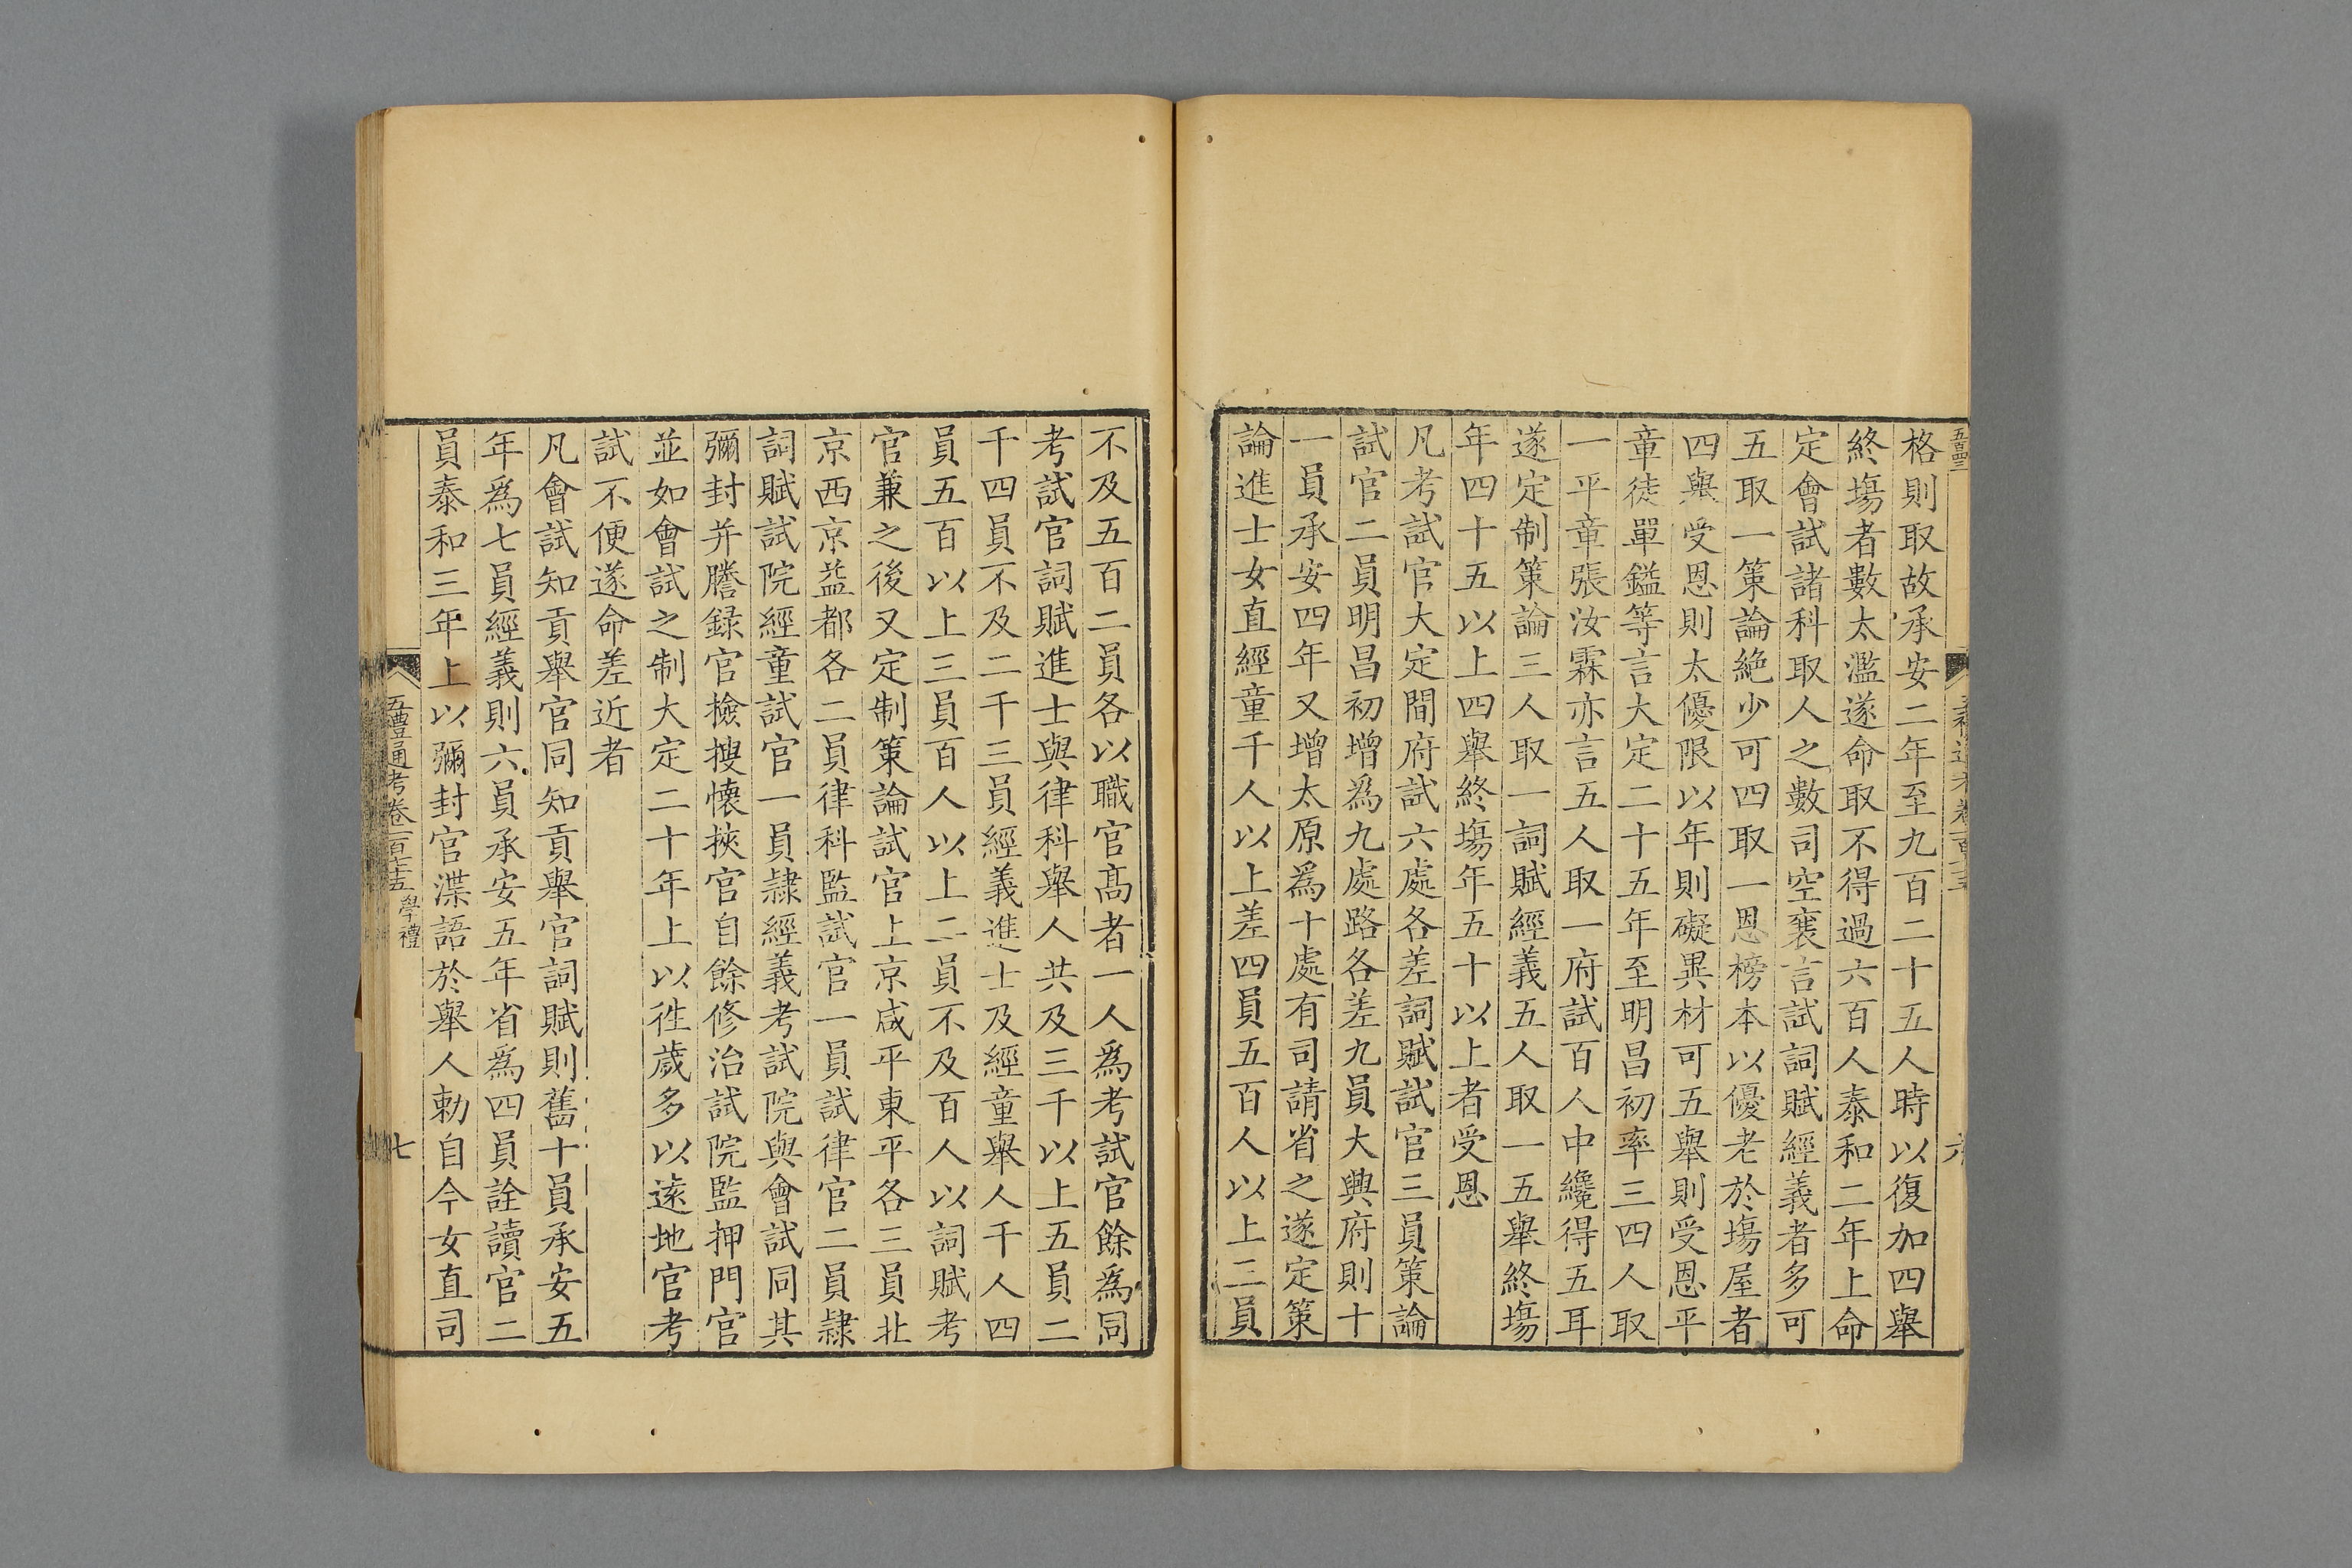 格則取故承安二年至九百二十五人時以復加四舉
終塲者數太濫遂命取不得過六百人泰和二年上命
定會試諸科取人之數司空襄言試詞賦經義者多可
五取一策論絶少可四取一恩榜本以優老於塲屋者
四舉受恩則太優限以年則礙異材可五舉則受恩平
章徒單鎰等言大定二十五年至明昌初率三四人取
一平章張汝霖亦言五人取一府試百人中纔得五耳
遂定制策論三人取一詞賦經義五人取一五舉終塲
年四十五以上四舉終塲年五十以上者受恩
凡考試官大定間府試六處各差詞賦試官三員策論
試官二員明昌初增爲九處路各差九員大興府則十
一員承安四年又增太原爲十處有司請省之遂定策
論進士女直經童千人以上差四員五百人以上二員
不及五百二員各以職官髙者一人爲考試官餘爲同
考試官詞賦進士與律科舉人共及三千以上五員二
千四員不及二千三員經義進士及經童舉人千人四
員五百以上三員百人以上二員不及百人以詞賦考
官兼之後又定制策論試官上京咸平東平各三員北
京西京益都各二員律科監試官一員試律官二員隷
詞賦試院經童試官一員隷經義考試院與會試同其
彌封并謄録官檢搜懐挾官自餘修治試院監押門官
並如會試之制大定二十年上以徃歲多以逺地官考
試不便遂命差近者
凡會試知貢舉官同知貢舉官詞賦則舊十員承安五
年爲七員經義則六員承安五年省爲四員詮讀官二
員泰和三年上以彌封官渫語於舉人勅自今女直司
五禮通考卷一百七十五 學禮
七